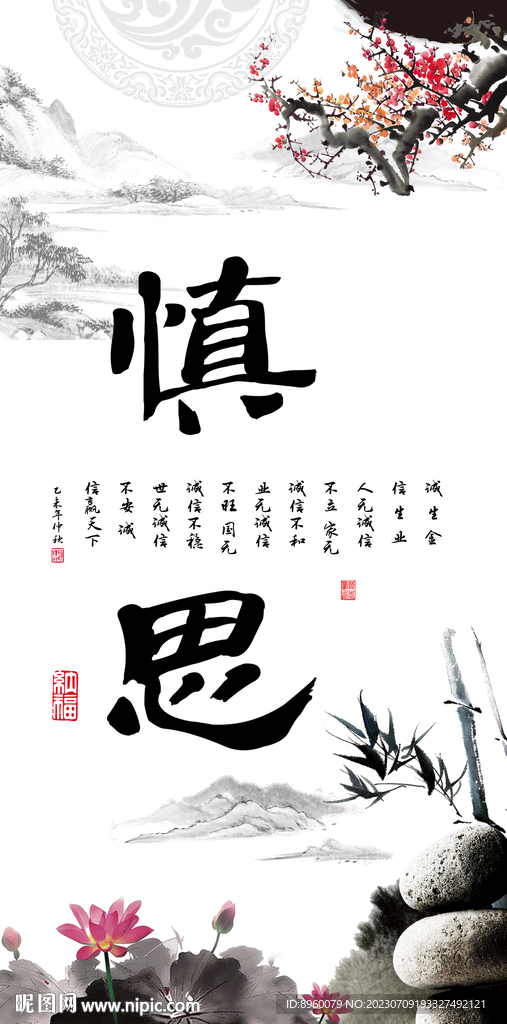 慎
诚生金
信生业
人无诚信
不立 家无
诚信不和
业无诚信
不旺 国无
诚信不稳
世无诚信
不安 诚
信赢天下
乙未年仲秋
思
纳福
昵图网 www.nipic.com
ID:8960079 NO:20230709193327492121